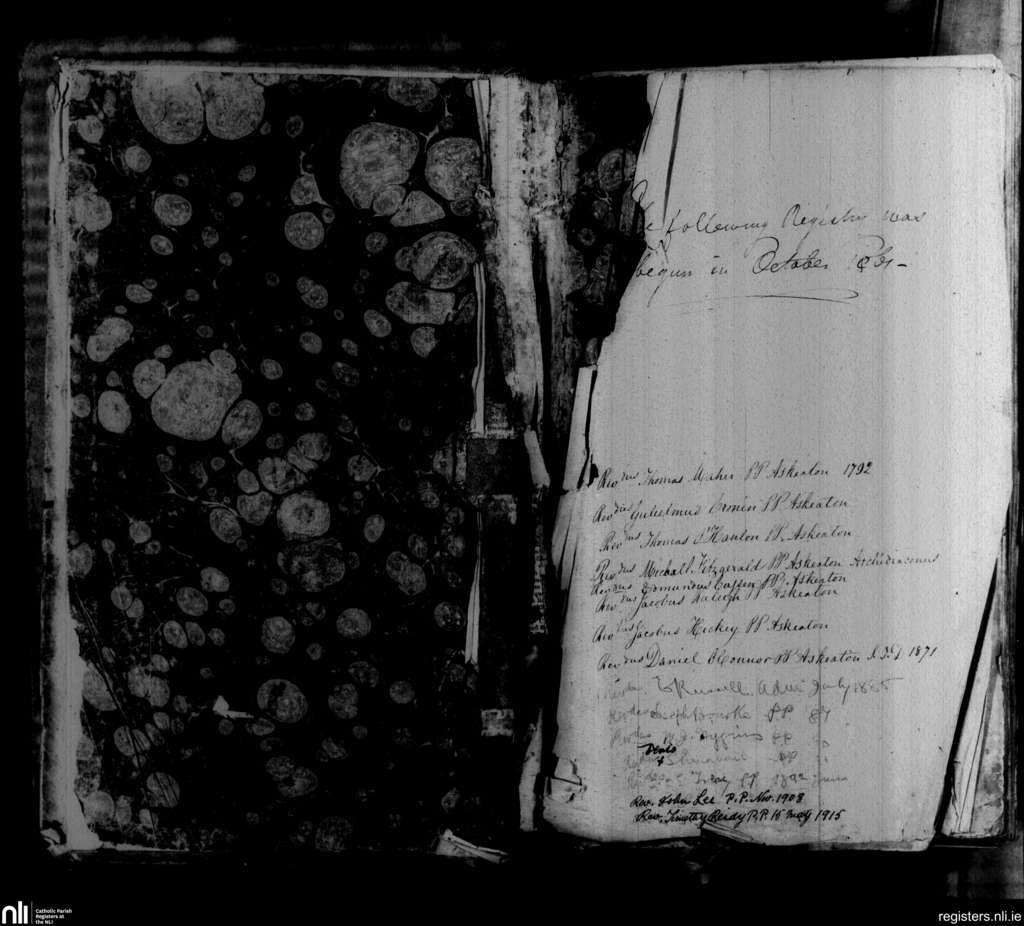 following Registry was
begun in October
Rev.dus Thomas Maher PP Askeaton 1792
Rev.dus Gulielmus Cronin PP Askeaton
Rev.dus Thomas O'Hanlon PP. Askeaton
Rev.dus Michall. Fitzgerald PP Askeaton Archidiaconus
Rev.dus Edmundus Cussen PP. Askeaton
Rev.dus Jacobus Raleigh PP Askeaton
Rev.dus Jacobus Hickey PP Askeaton
Rev.dus Daniel O'Connor PP Askeaton 1871
Russell Adm July
PP
Higgins PP
Denis
Shanahan PP
PP 1892
Rev. John Lee P.P. Nov. 1908
Rev. Timothy Reidy P.P. 15 May 1915
nli
Catholic Parish
Registers at
the NLI
registers.nli.ie